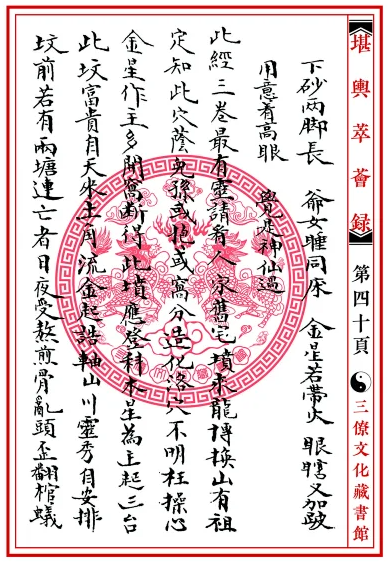 堪輿萃薈錄 第四十頁 三僚文化藏書館
下砂两脚長 爺女睡同床 金星若帶火 眼瞎又加跛
用意看高眼 覺是神仙過
此經三卷最有靈請看人家舊宅墳來龍博換山有祖
定知此穴蔭兒孫或抱或窩分造化洛穴不明枉操心
金星作主多開窩断得此墳應登科木星為主起三台
此坟富貴自天來土角流金起誥軸山川靈秀自安排
坟前若有兩塘連亡者日夜受熬煎骨亂頭歪翻棺蟻